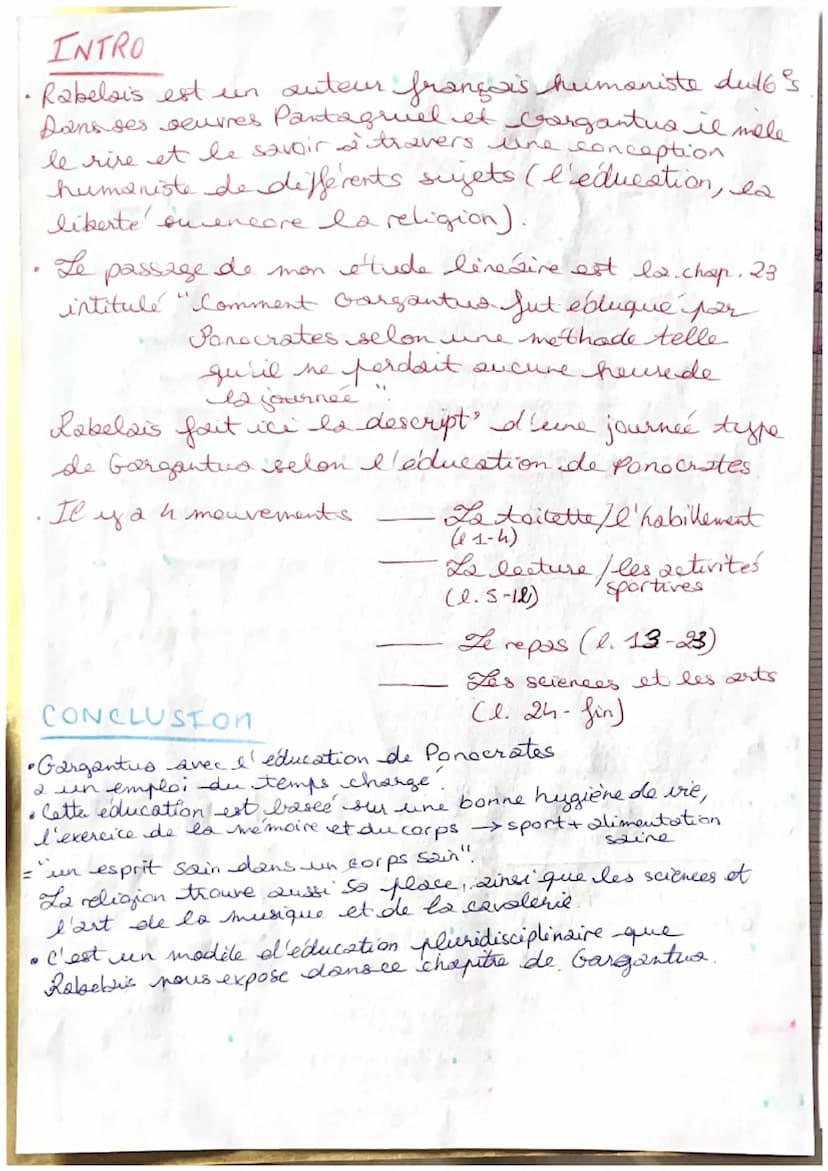 INTRO
• Rabelais est un auteur français humaniste du 16e s
Dans ses oeuvres Pantagruel et Gargantua il mêle
le rire et le savoir à travers une conception
humaniste de différents sujets (l'éducation, la
liberté ou encore la religion).
• Le passage de mon étude linéaire est la chap. 23
intitulé "Comment Gargantua fut éduqué par
Ponocrates selon une méthode telle
qu'il ne perdait aucune heure de
la journée".
Rabelais fait ici la descript° d'une journée type
de Gargantua selon l'éducation de Ponocrates
• Il y a 4 mouvements — La toilette/l'habillement
(l 1-4)
— La lecture / les activités
(l. 5-12) sportives
— Le repas (l. 13-23)
— Les sciences et les arts
(l. 24 - fin)
CONCLUSION
• Gargantua avec l'éducation de Ponocrates
a un emploi du temps chargé.
• Cette éducation est basée sur une bonne hygiène de vie,
l'exercice de la mémoire et du corps → sport + alimentation
saine
= "un esprit sain dans un corps sain".
La religion trouve aussi sa place, ainsi que les sciences et
l'art de la musique et de la cavalerie.
• C'est un modèle d'éducation pluridisciplinaire que
Rabelais nous expose dans ce chapitre de Gargantua.